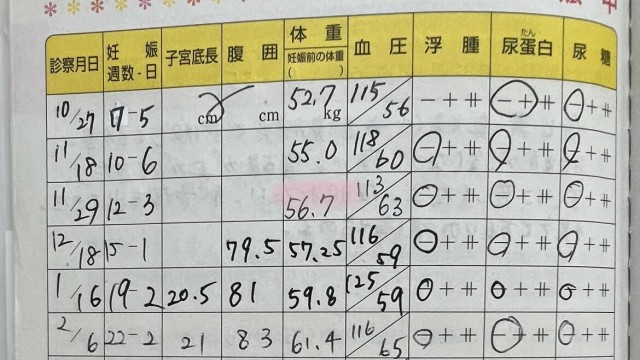 診察月日 妊娠週数-日 子宮底長 腹囲 体重 妊娠前の体重( ) 血圧 浮腫 尿蛋白(たん) 尿糖
10/27 7-5 cm cm 52.7kg 115/56 - + ⧺ - + ⧺ - + ⧺
11/18 10-6 55.0 118/60 - + ⧺ - + ⧺ - + ⧺
11/29 12-3 56.7 113/63 - + ⧺ - + ⧺ - + ⧺
12/18 15-1 79.5 57.25 116/59 - + ⧺ - + ⧺ - + ⧺
1/16 19-2 20.5 81 59.8 125/59 - + ⧺ - + ⧺ - + ⧺
2/6 22-2 21 83 61.4 116/65 - + ⧺ - + ⧺ - + ⧺